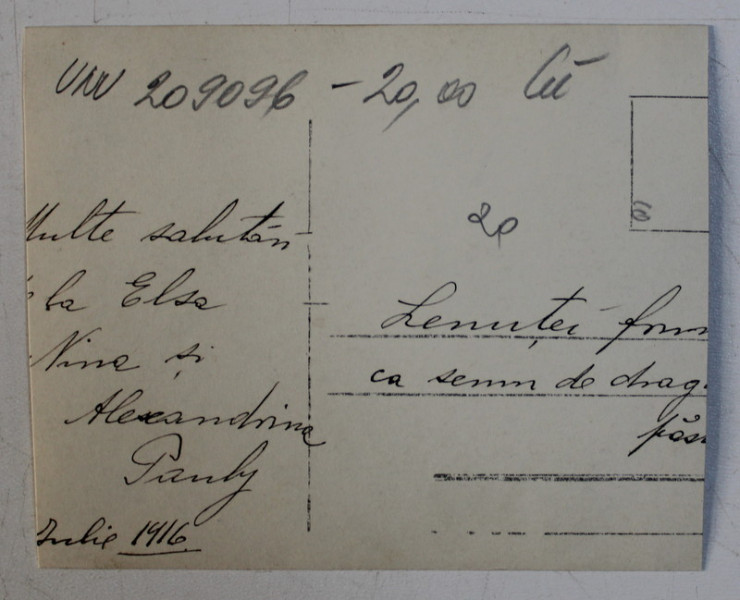 209096 - 20,00
20
Multe salutări
la Elsa
Nina și
Alexandrina
Pauly
Iulie 1916
Lenuței frum
ca semn de drag.
păs